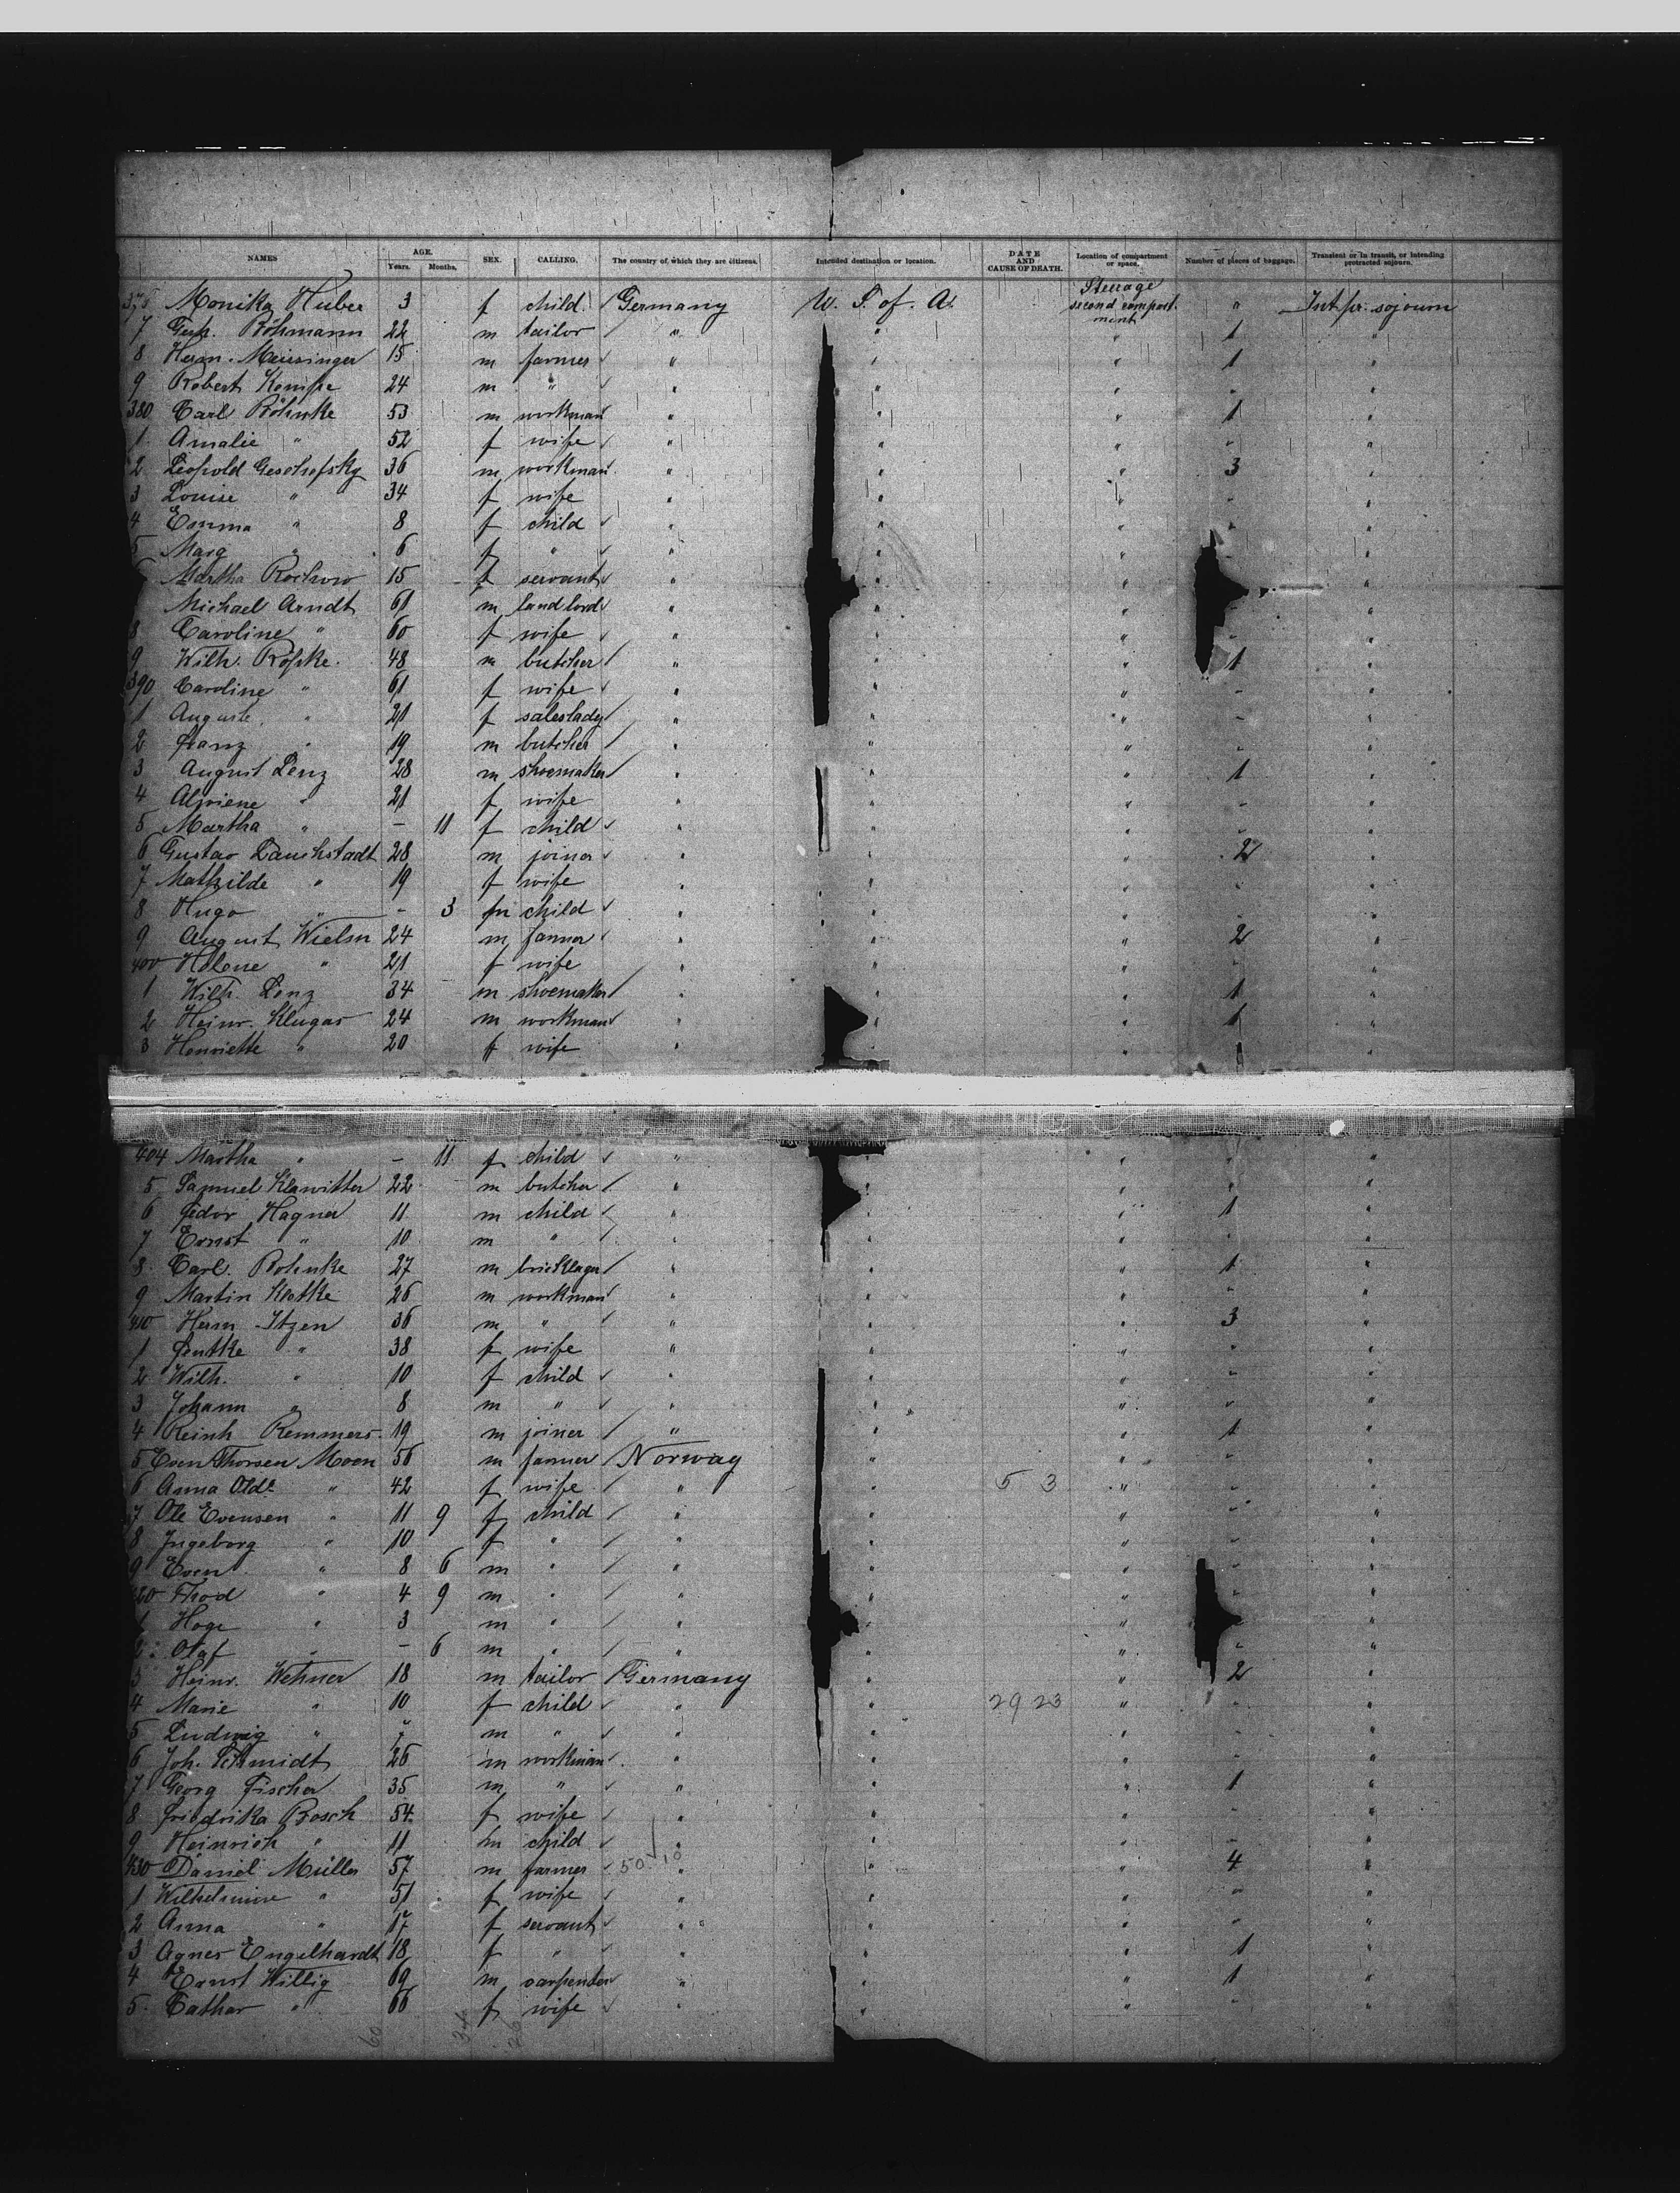 NAMES AGE. Years. Months. SEX. CALLING. The country of which they are citizens. Intended destination or location. DATE AND CAUSE OF DEATH. Location of compartment or space. Number of pieces of baggage. Transient or in transit, or intending protracted sojourn.
376 Monika Huber 3 f child Germany U. S. of A. Steerage second compartment " Int pr. sojourn
7 Rohmann 22 m tailor " " " 1 "
8 Herm. Meissinger 15 m farmer " " " 1 "
9 Robert Kempe 24 m " " " " " "
380 Carl Röhnke 53 m workman " " " 1 "
1 Amalie " 52 f wife " " " " "
2 Leopold Geschofsky 36 m workman " " " 3 "
3 Louise " 34 f wife " " " " "
4 Emma " 8 f child " " " " "
5 Marg " 6 f " " " " "
Martha Rochow 15 f servant " " " "
Michael Arndt 61 m landlord " " " "
8 Caroline " 60 f wife " " " "
9 Wilh. Röpke 48 m butcher " " " 1 "
390 Caroline " 61 f wife " " " " "
1 Auguste " 21 f saleslady " " " " "
2 Franz " 19 m butcher " " " " "
3 August Lenz 28 m shoemaker " " " 1 "
4 " 21 f wife " " " " "
5 Martha " - 11 f child " " " " "
6 Gustav Lauchstadt 28 m joiner " " " 2 "
7 Mathilde " 19 f wife " " " " "
8 Hugo " - 3 m child " " " " "
9 August Wielsn 24 m farmer " " " 2 "
400 Helene " 21 f wife " " " " "
1 Wilh. Lenz 34 m shoemaker " " " 1 "
2 Heinr. Klugas 24 m workman " " " 1 "
3 Henriette " 20 f wife " " "
404 Martha " - 11 f child " " " "
5 Samuel Klawitter 22 m butcher " " " " "
6 Fedor Hagner 11 m child " " 1 "
7 Ernst " 10 m " " " " "
8 Carl Rohnke 27 m bricklayer " " " 1 "
9 Martin Klotke 26 m workman " " " " "
410 Herm Itzen 36 m " " " " 3 "
1 Gentke " 38 f wife " " " " "
2 Wilh. " 10 f child " " " " "
3 Johann " 8 m " " " " " "
4 Reinh Remmers 19 m joiner " " " 1 "
5 Even Thorsen Moen 56 m farmer Norway " " " "
6 Anna Oldr " 42 f wife " " 5 3 " " "
7 Ole Evensen " 11 9 f child " " " " "
8 Ingeborg " 10 f " " " " " "
9 Even " 8 6 m " " " " " "
420 Thod " 4 9 m " " " " " "
1 Hoge " 3 m " " " " "
2 Olaf " - 6 m " " " " " "
3 Heinr. Wehner 18 m tailor Germany " " 2 "
4 Marie " 10 f child " " 29 23 " " "
5 Ludwig " 7 m " " " " " "
6 Joh. Schmidt 26 m workman " " " " "
7 Georg Fischer 35 m " " " " 1 "
8 Friedrika Rosch 54 f wife " " " " "
9 Heinrich " 11 m child " " " " "
430 Daniel Müller 57 m farmer 50 10 " " " 4 "
1 Wilhelmine " 51 f wife " " " " "
2 Anna " 17 f servant " " " " "
3 Agnes Engelhardt 18 f " " " " 1 "
4 Ernst Willig 69 m carpenter " " " 1 "
5 Cathar " 66 f wife " " " " "
60 34 26